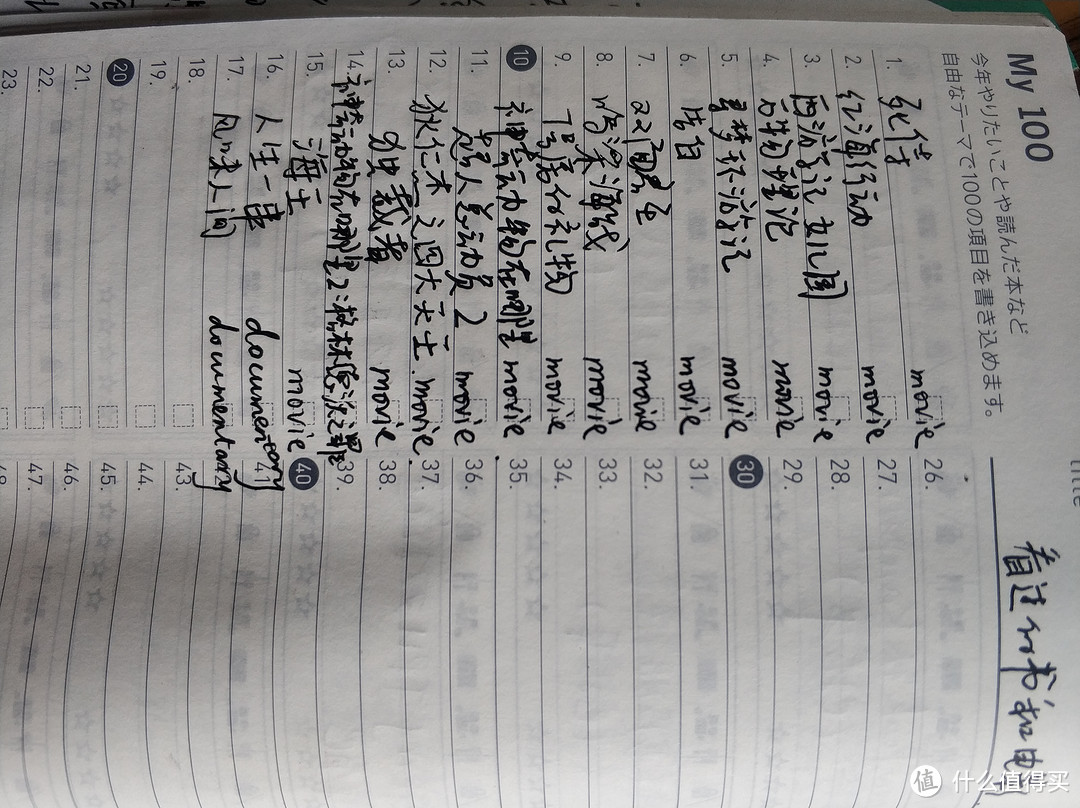 title
看过的书和电
My 100
今年やりたいことや読んだ本など
自由なテーマで100の項目を書き込めます。
1. 死侍 movie
2. 红海行动 movie
3. 西游记女儿国 movie
4. 唐人街探 movie
5. 寻梦环游记 movie
6. movie
7. movie
8. movie
9. movie
10 神奇动物在哪里 movie
11. 超人总动员2 movie
12. 狄仁杰之四大天王. movie.
13. 独裁者 movie
14. 神奇动物在哪里2:格林德沃之罪
15. 海王 movie
16. 人生一串 documentary
17. 风味人间 documentary
18.
19.
20
21.
22.
23.
26.
27.
28.
29.
30
31.
32.
33.
34.
35.
36.
37.
38.
39.
40
41
43.
44.
45.
46.
47.
值 什么值得买